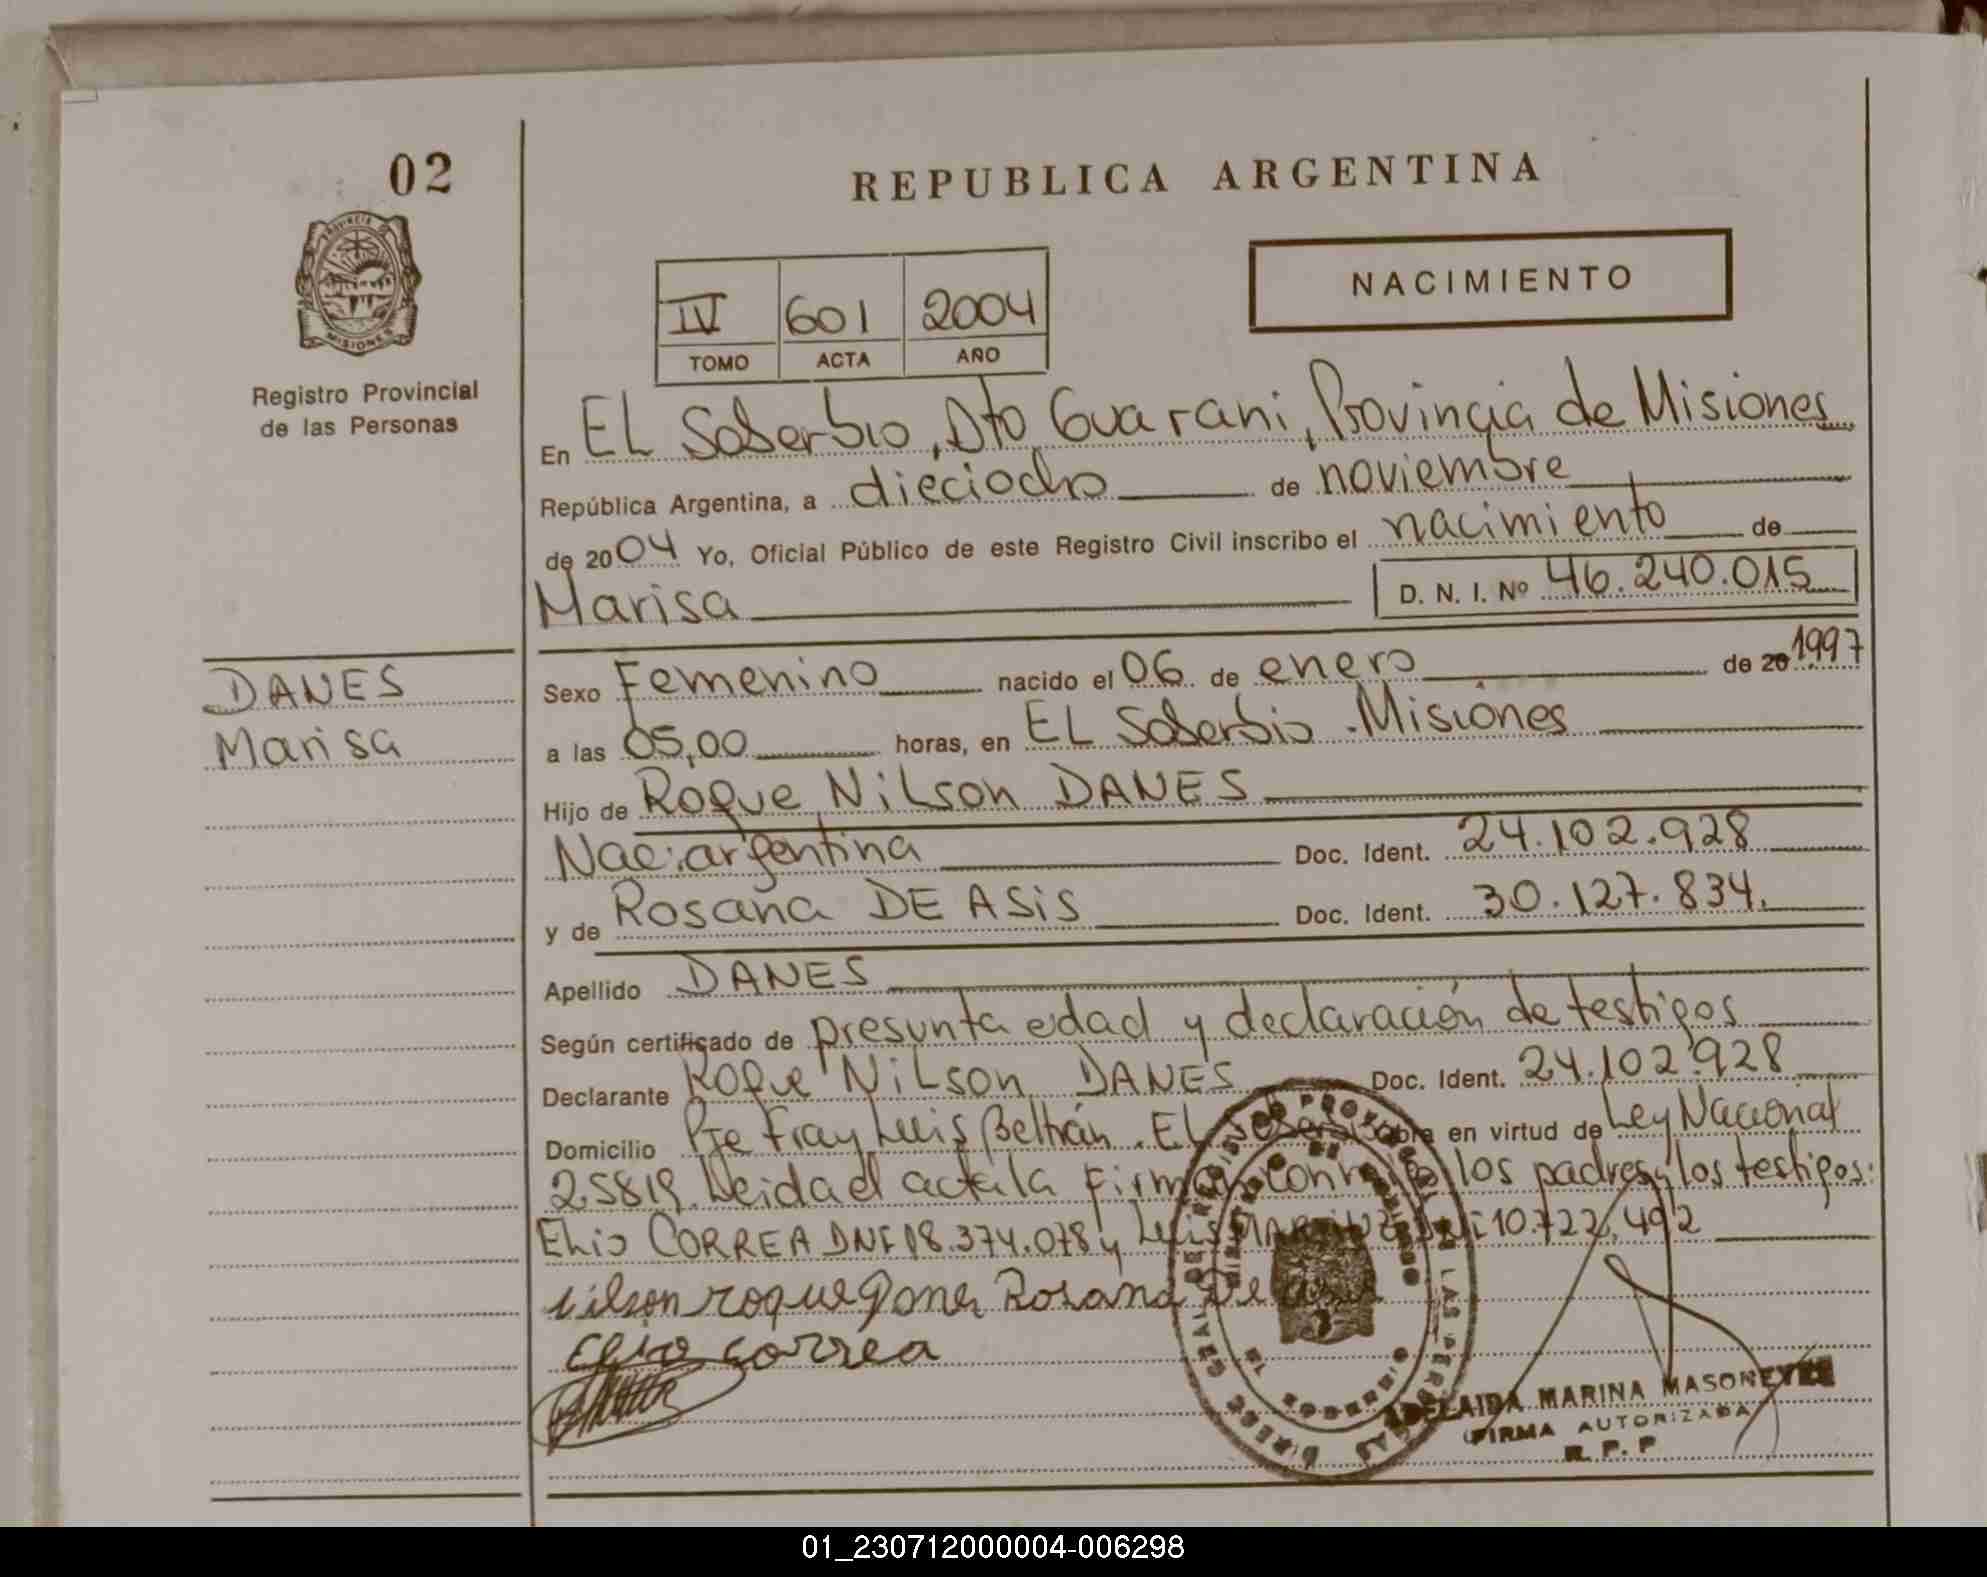 02
REPUBLICA ARGENTINA
PROVINCIA DE
MISIONES
Registro Provincial
de las Personas
NACIMIENTO
IV 601 2004
TOMO ACTA AÑO
En EL Soberbio, Dto Guarani, Provincia de Misiones
República Argentina, a dieciocho de noviembre
de 2004 Yo, Oficial Público de este Registro Civil inscribo el nacimiento de
Marisa D. N. I. Nº 46.240.015
DANES
Marisa
Sexo Femenino nacido el 06 de enero de 20 1997
a las 05,00 horas, en EL Soberbio - Misiones
Hijo de Roque Nilson DANES
Nac: argentina Doc. Ident. 24.102.928
y de Rosana DE ASIS Doc. Ident. 30.127.834.
Apellido DANES
Según certificado de presunta edad y declaración de testigos
Declarante Roque Nilson DANES Doc. Ident. 24.102.928
Domicilio Pje Fray Luis Beltrán. EL Soberbio Obra en virtud de Ley Nacional
25819. Leida el acta la firman conmigo los padres y los testigos:
Elio CORREA DNI 18.374.078 y Luis 10.722.492
nilson roque Danes Rosana De asis
Elio correa
ADELAIDA MARINA MASONEYRE
FIRMA AUTORIZADA
R. P. P
01_230712000004-006298